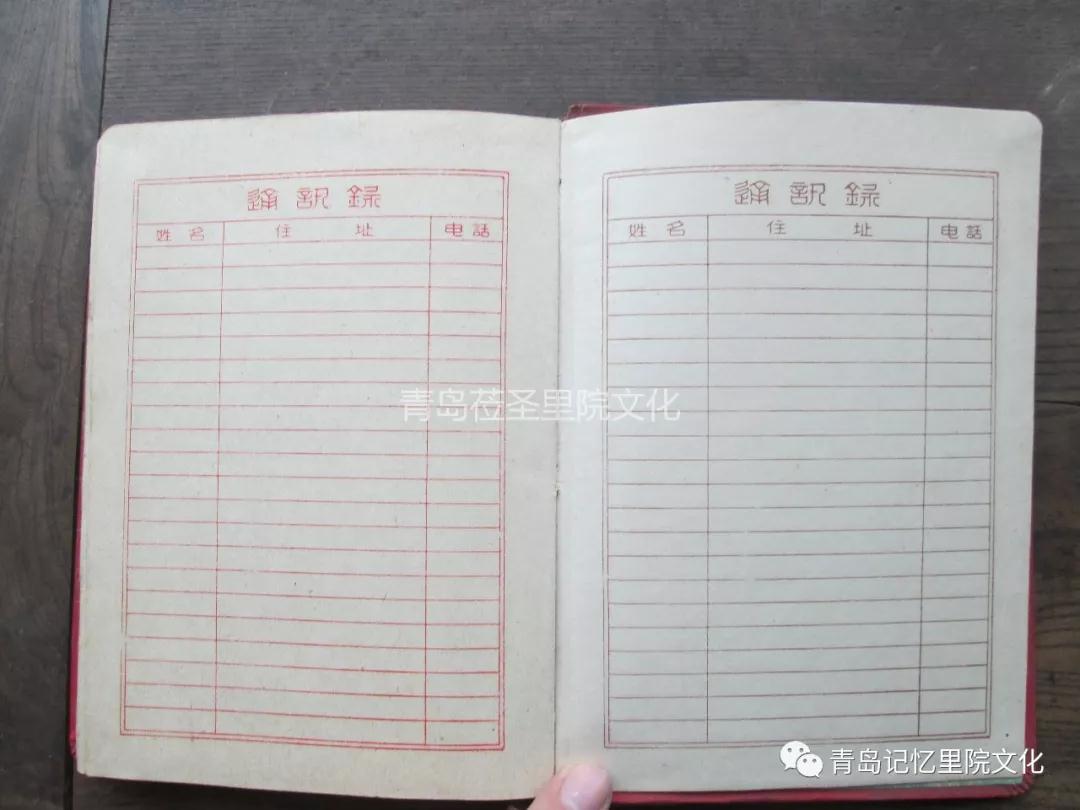 通訊録
姓名 住址 电話
通訊録
姓名 住址 电話
青岛莅圣里院文化
青岛记忆里院文化